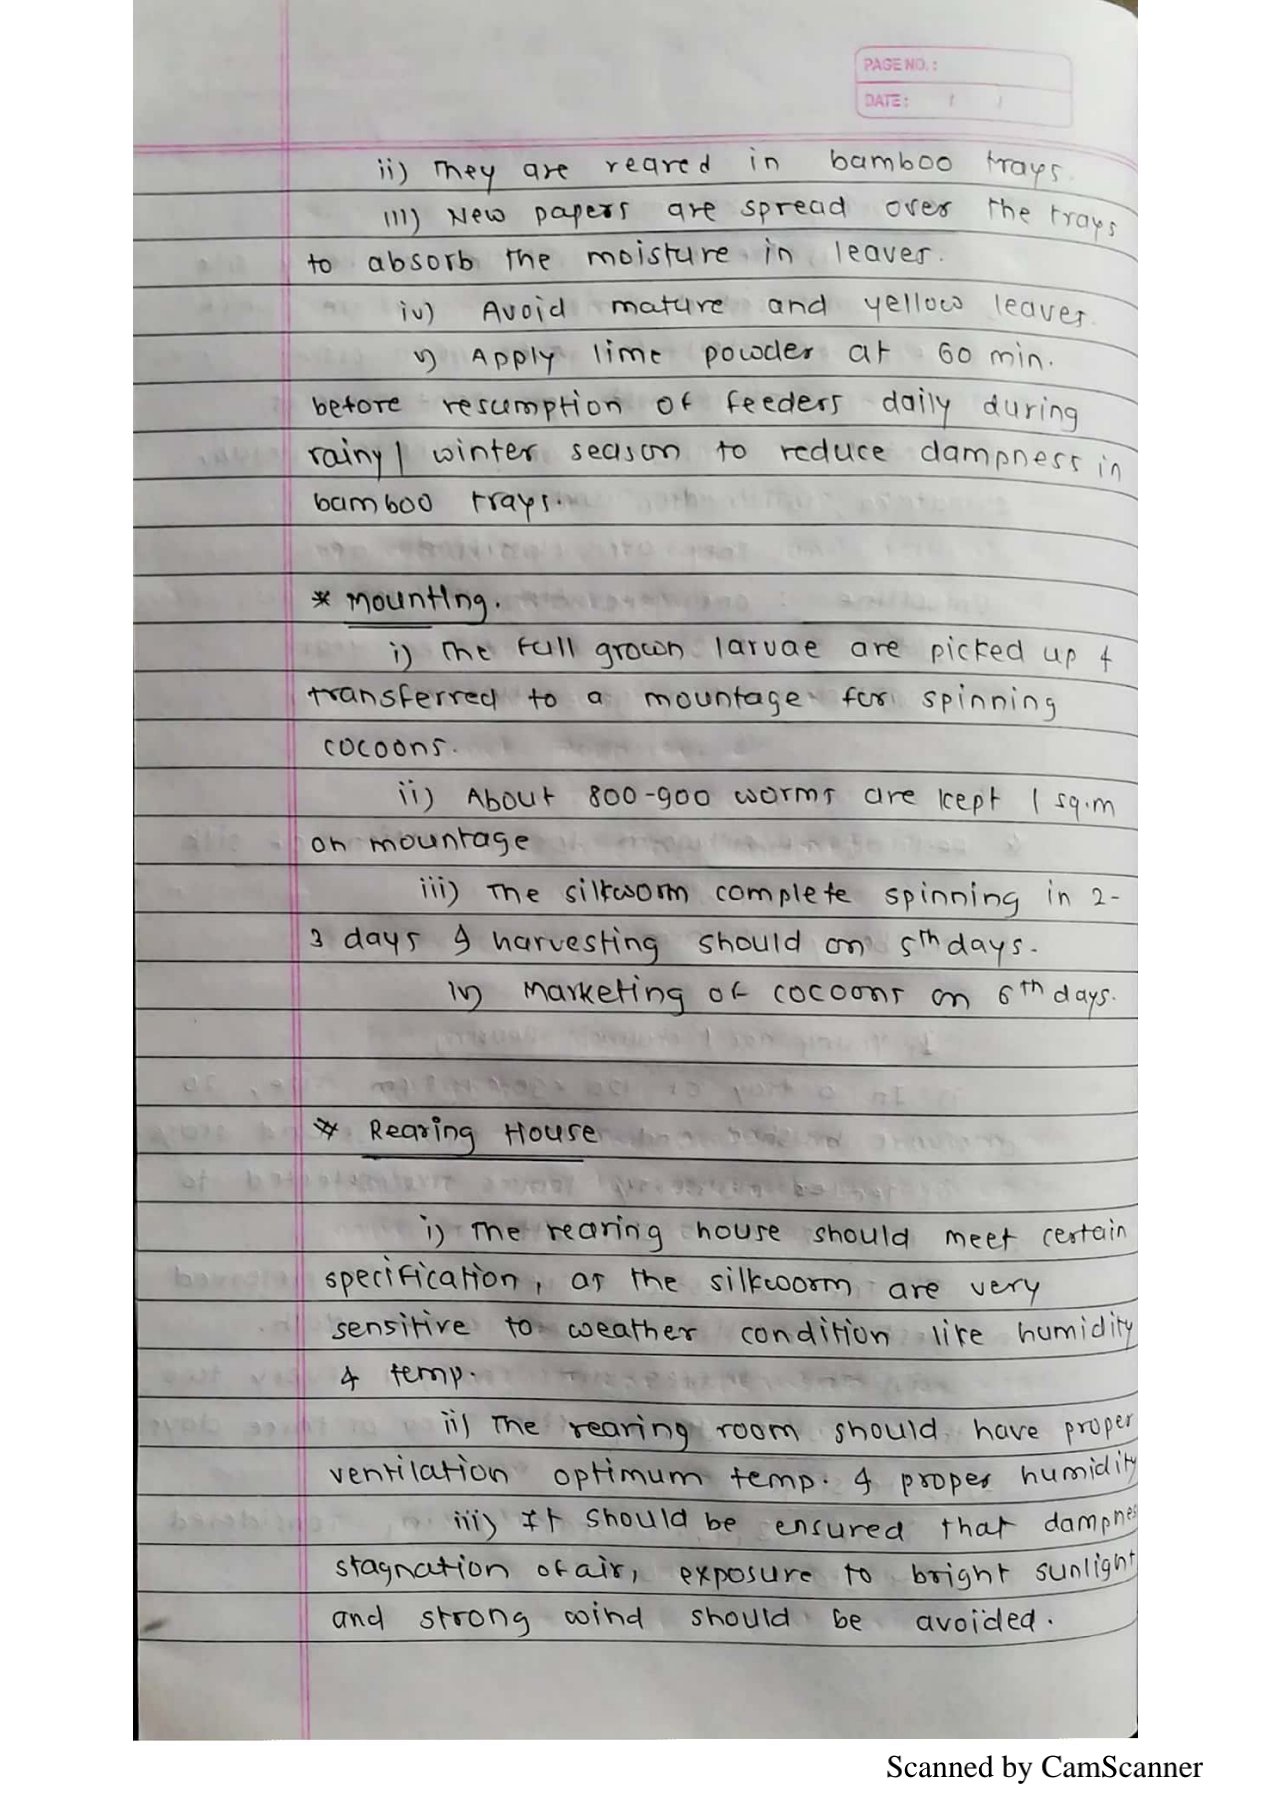 PAGE NO. :
DATE : / /
ii) They are reared in bamboo trays.
iii) New papers are spread over the trays
to absorb the moisture in leaves.
iv) Avoid mature and yellow leaves.
v) Apply lime powder at 60 min.
before resumption of feeders daily during
rainy / winter season to reduce dampness in
bamboo trays.
* Mounting.
i) The full grown larvae are picked up &
transferred to a mountage for spinning
cocoons.
ii) About 800-900 worms are kept / sq.m
on mountage
iii) The silkworm complete spinning in 2-
3 days & harvesting should on 5th days.
iv) Marketing of cocoons on 6th days.
* Rearing House
i) The rearing house should meet certain
specification, as the silkworm are very
sensitive to weather condition like humidity
& temp.
ii) The rearing room should have proper
ventilation optimum temp. & proper humidity
iii) It should be ensured that dampnes
stagnation of air, exposure to bright sunlight
and strong wind should be avoided.
Scanned by CamScanner